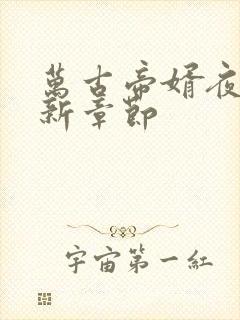 萬古帝婿夜
新章節
宇宙第一紅